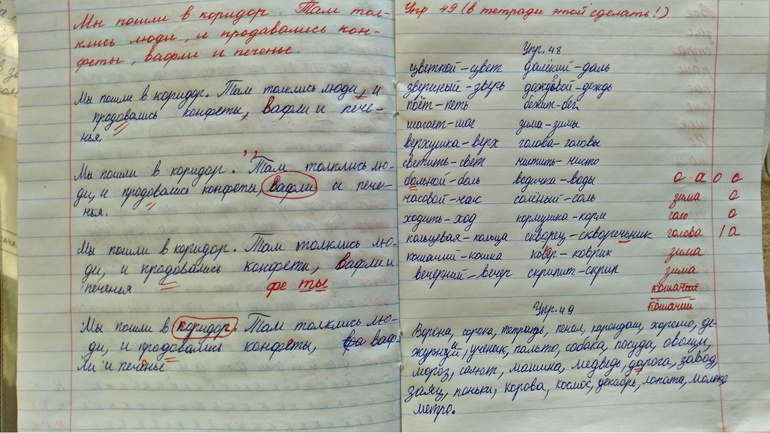 Мы пошли в коридор. Там тол-
клись люди, и продавались кон-
феты, вафли и печенье.
Мы пошли в коридор. Там толклись люди, и
продовались конфеты, вафли и пече-
нья.
Мы пошли в коридор. Там толклись лю-
ди, и продовались конфеты, вафли и пече-
нья.
Мы пошли в коридор. Там толклись лю-
ди, и продовались конфеты, вафли и
печенья феты
Мы пошли в коридор. Там толклись лю-
ди, и продовались конфеты, ваф
ли и печенье
Упр 49 (в тетради этой сделать!)
Упр. 48
цветной-цвет далёкий-даль
зверинный-зверь дождевой-дождь
поёт-петь бежит-бег
шагает-шаг зима-зимы
верхушка-верх голова-головы
светить-свет чистить-чисто
больной-боль водичка-воды о а о а
часовой-час солёный-соль зима о
ходить-ход кормушка-корм о
пальцевая-пальца скворец-скворечьник голова 1 а
кошачий-кошка ковёр-коврик зима
вечерний-вечер скрипит-скрип зима
кошачий
Упр. 49
Ворона, сорока, тетрадь, пенал, карандаш, хорошо, де-
журный, ученик, пальто, собака, посуда, овощи,
мороз, салют, машина, медведь, дорога, завод,
заяц, коньки, корова, космос, декабрь, лопата, молоко
метро.